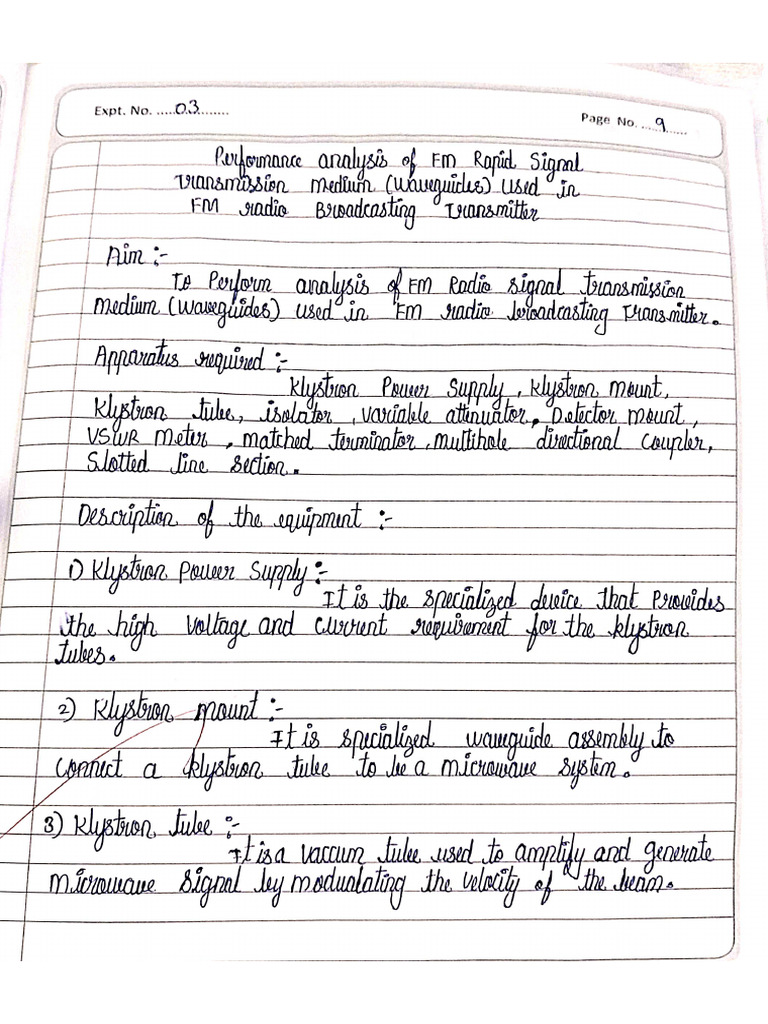 Expt. No. .....03........
Page No. ....9......
Performance analysis of FM Rapid Signal
Transmission Medium (Waveguides) Used in
FM radio Broadcasting Transmitter
Aim :-
To Perform analysis of FM Radio signal transmission
Medium (Waveguides) used in FM radio broadcasting Transmitter.
Apparatus required :-
Klystron Power Supply, Klystron mount,
Klystron tube, isolator, variable attenuator, Detector mount,
VSWR Meter, matched terminator, multihole directional coupler,
Slotted line section.
Description of the equipment :-
1) Klystron Power Supply :-
It is the specialized device that Provides
the high voltage and current requirement for the klystron
tubes.
2) Klystron mount :-
It is specialized waveguide assembly to
connect a klystron tube to be a microwave system.
3) Klystron tube :-
It is a vaccum tube used to amplify and generate
microwave signal by moduatating the velocity of the beam.